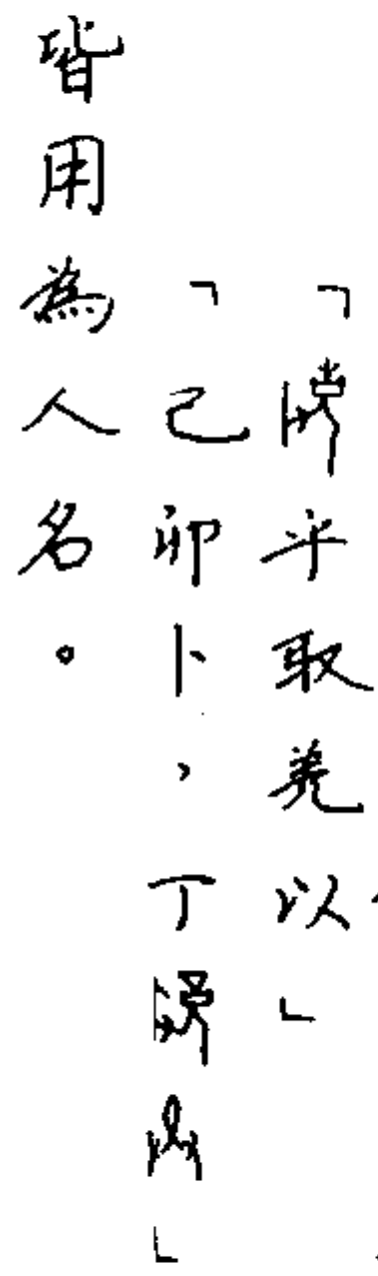 「乎取羌以」
「己卯卜，丁」
皆用為人名。